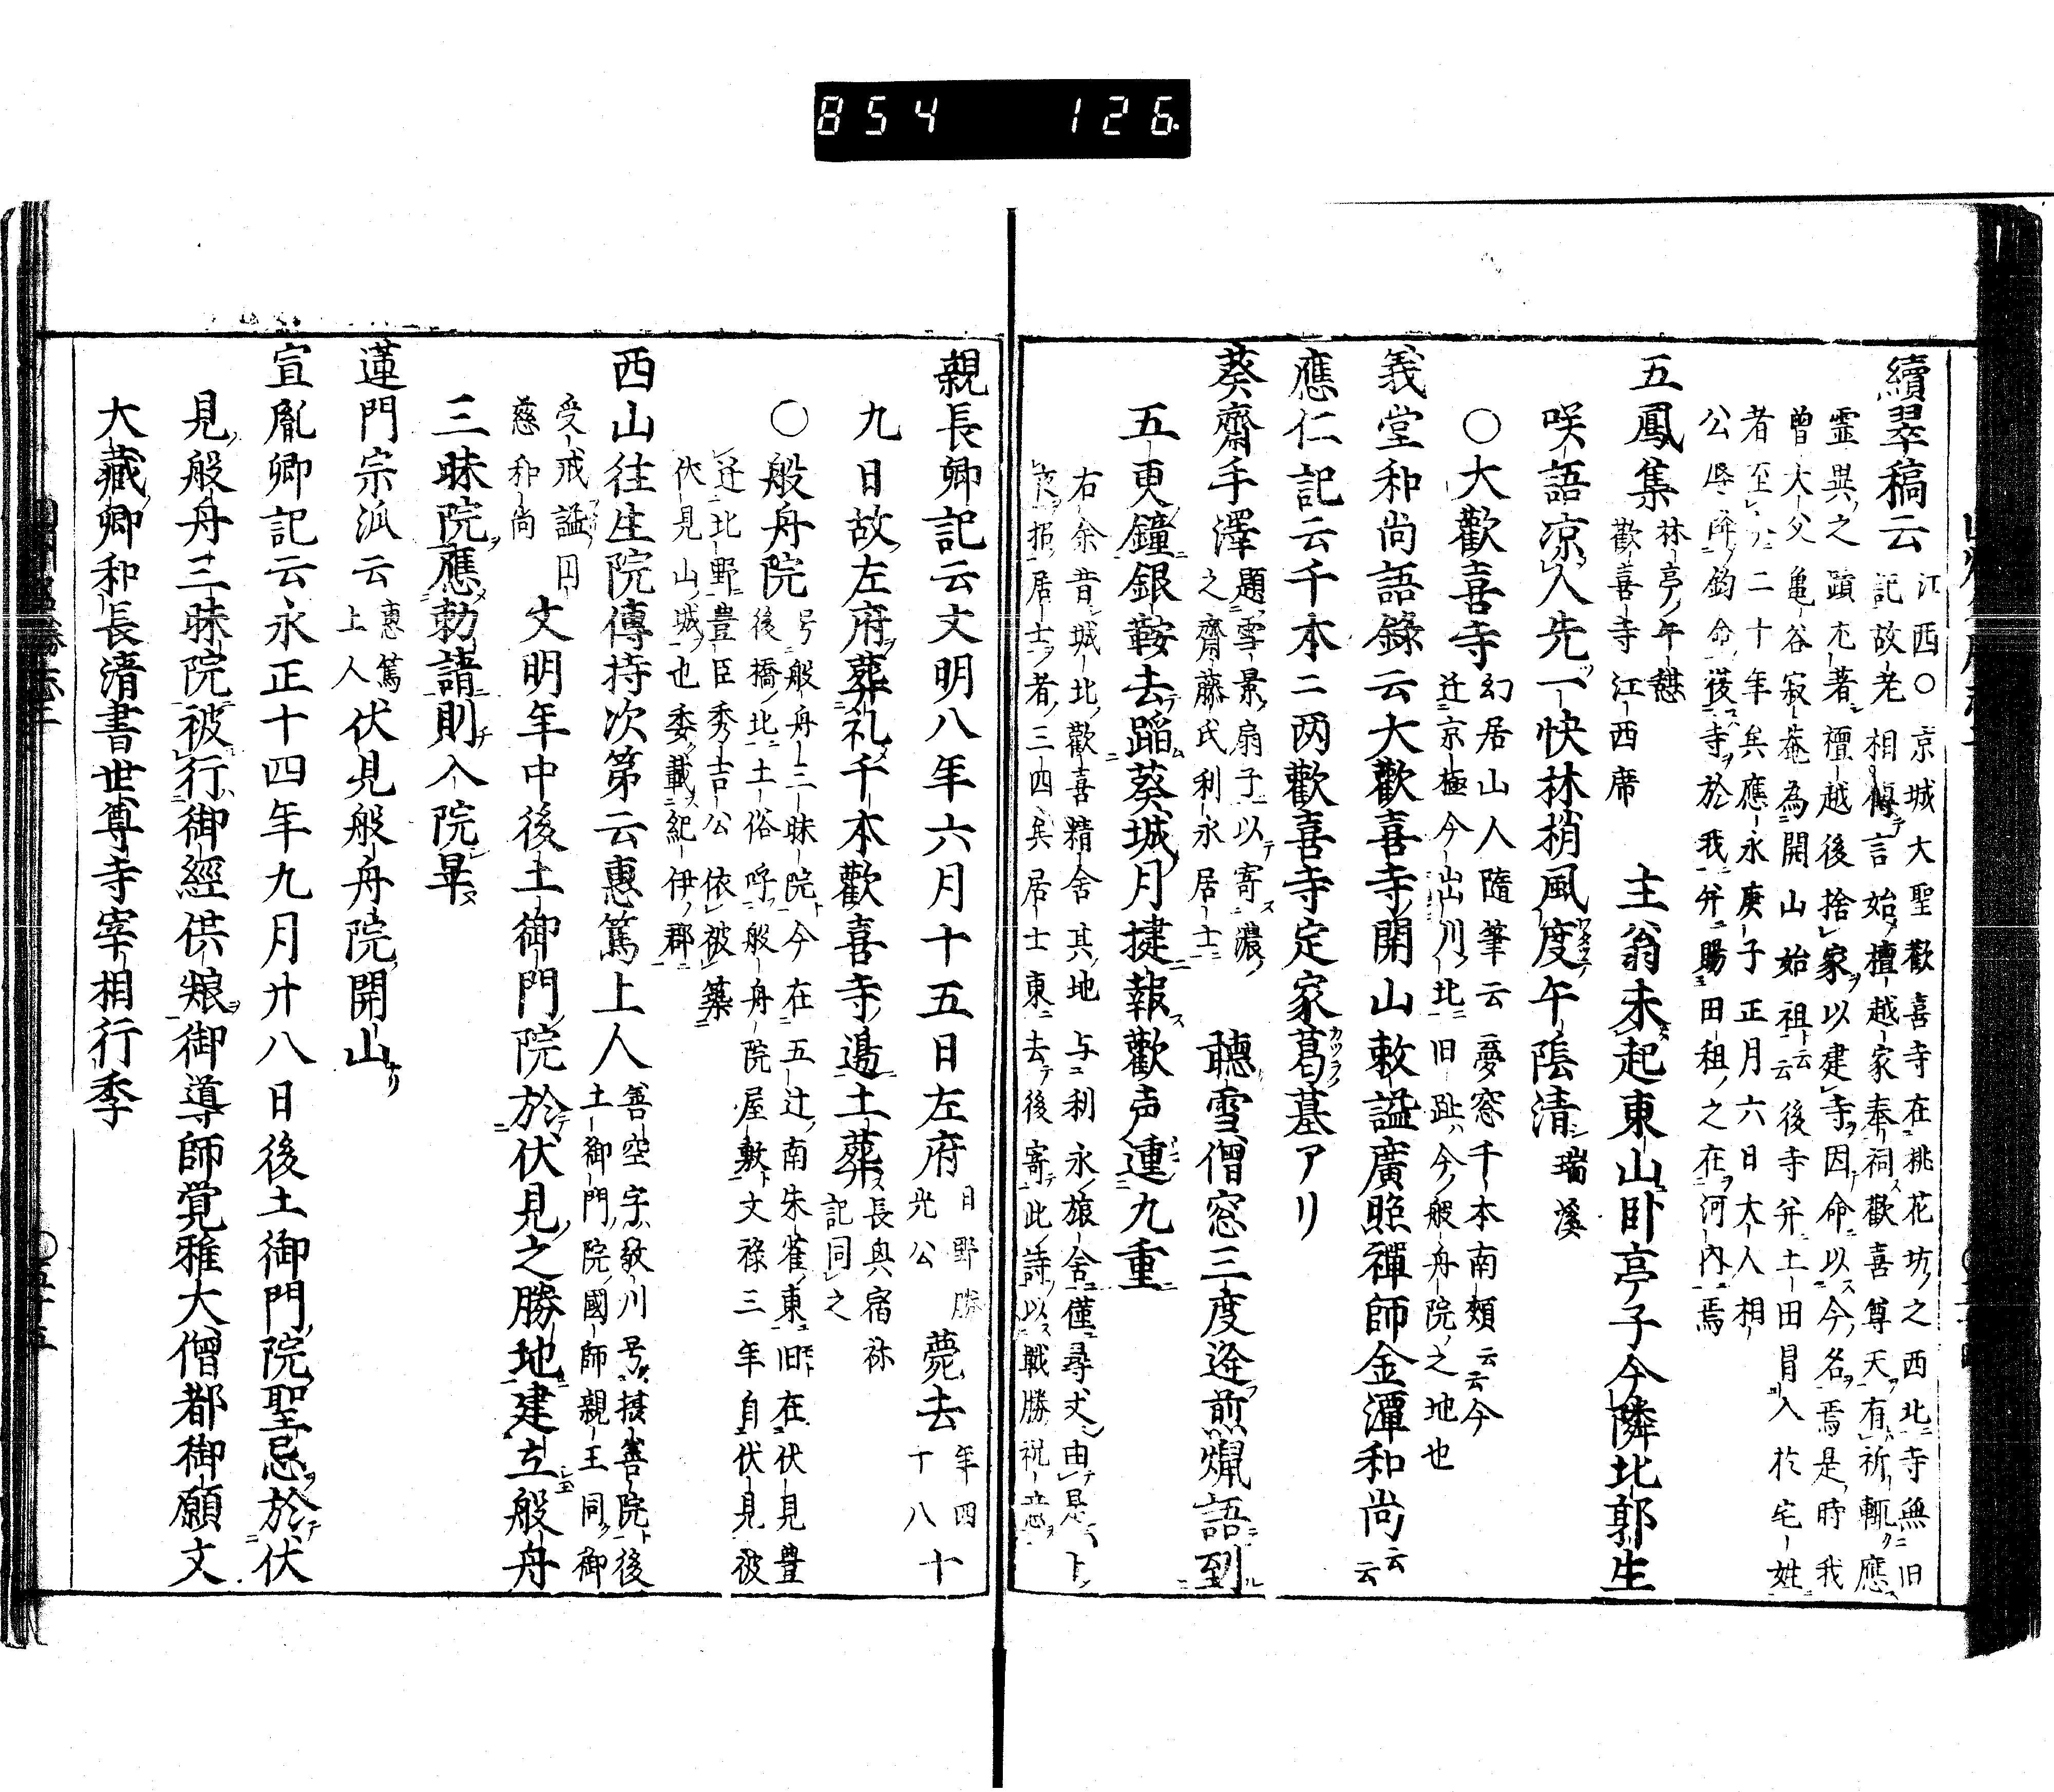 854 126
續翠稿云 江西○京城大聖歡喜寺在桃花坊之西北寺無旧
記故老相傳言始檀越家奉祠歡喜尊天有祈輙應
霊與之蹟尤著檀越後捨家以建寺因命以今名焉是時我
曾大父亀谷寂菴為開山始祖云云後寺弁土田冐入於宅姓
者至二十年矣應永庚子正月六日大人相
公鈞命茷寺於我弁賜田租之在河内焉
五鳳集 林亭午憇
歡喜寺 江西席
主翁未起東山卧亭子今隣北郭生
咲語凉人先一快林梢風度午陰清 瑞溪
○大歡喜寺 幻居山人隨筆云夢窓千本南頬云云今
迁京極今山川北旧趾今般舟院之地也
義堂和尚語錄云大歡喜寺開山敕謚廣照禪師金潭和尚云云
應仁記云千本ニ两歡喜寺定家葛墓アリ
葵齋手澤 題雪景扇子以寄濃
之齋藤氏利永居士
聽雪僧窓三度逢煎爛語到
五更鐘銀鞍去蹈葵城月揵報歡声連九重
右余昔城北歡喜精舍其地与利永旅舍僅尋丈由是
居士者三四矣居士東去後寄此詩以戰勝祝
親長卿記云文明八年六月十五日左府 日野勝
光公 薨去 年四十
八十
九日故左府葬礼千本歡喜寺邉土葬 長與宿祢
記同之
○般舟院 号般舟三昧院今在五辻南朱雀東旧在伏見豊
後橋北土俗呼般舟院屋敷文禄三年自伏見被
迁北野豊臣秀吉公依被築
伏見山城也委載紀伊郡
西山往生院傳持次第云惠篤上人 善空字敎川号摂善院後
土御門院國師親王同御
受戒謚円
慈和尚
文明年中後土御門院於伏見之勝地建立般舟
三昧院應勅請則入院畢
蓮門宗泒云 惠篤
上人 伏見般舟院開山ナリ
宣胤卿記云永正十四年九月廿八日後土御門院聖忌於伏
見般舟三昧院被行御經供粮御導師覚雅大僧都御願文
大藏卿和長清書世尊寺宰相行季